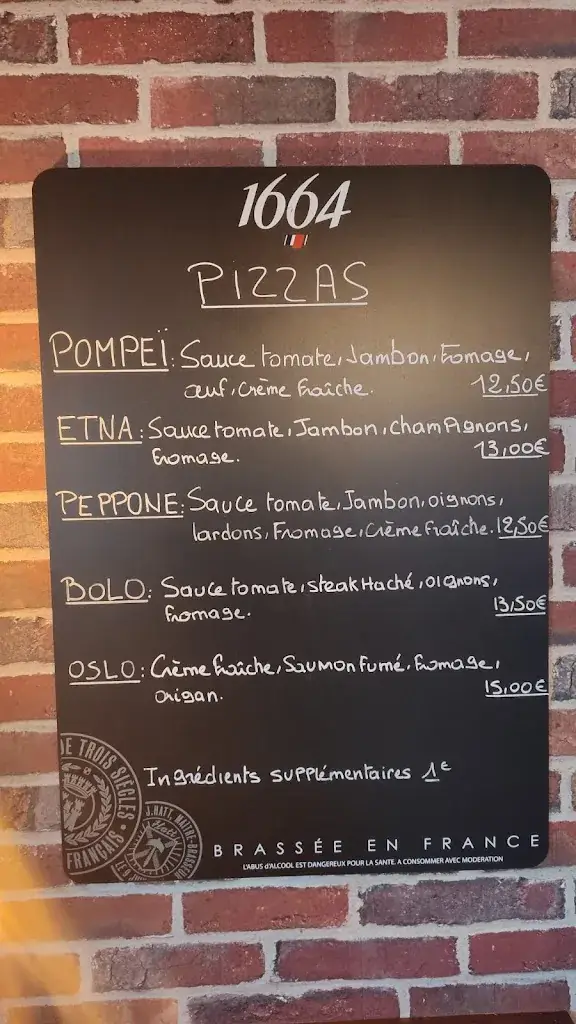 1664
PIZZAS
POMPEÏ: Sauce tomate, Jambon, Fromage,
œuf, Crème fraîche. 12,50€
ETNA: Sauce tomate, Jambon, champignons,
Fromage. 13,00€
PEPPONE: Sauce tomate, Jambon, oignons,
lardons, Fromage, Crème fraîche. 12,50€
BOLO: Sauce tomate, steak Haché, oignons,
Fromage. 13,50€
OSLO: Crème fraîche, Saumon Fumé, Fromage,
Origan. 15,00€
Ingrédients supplémentaires 1€
DE TROIS SIÈCLES
FRANÇAIS
J. HATT, MAITRE-BRASSEUR
Hatt
BRASSÉE EN FRANCE
L'ABUS d'ALCOOL EST DANGEREUX POUR LA SANTE. A CONSOMMER AVEC MODERATION